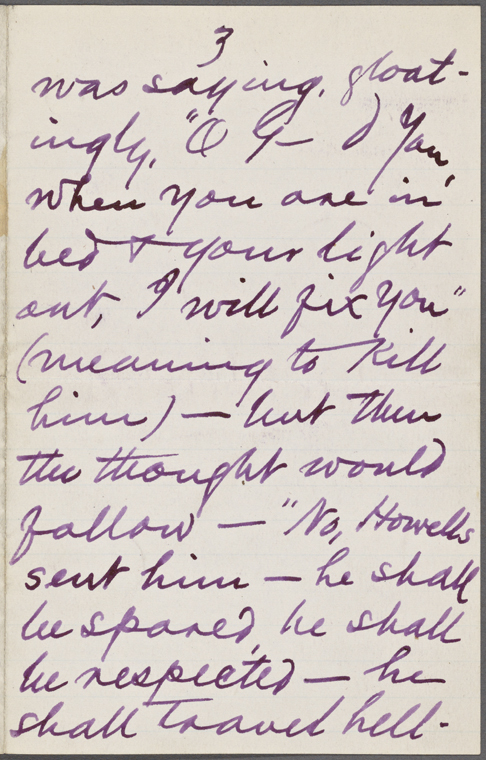 3
was saying, gloat-
ingly, "O G— d you,
when you are in
bed & your light
out, I will fix you"
(meaning to kill
him) — but then
the thought would
follow — "No, Howells
sent him — he shall
be spared, he shall
be respected — he
shall travel hell-